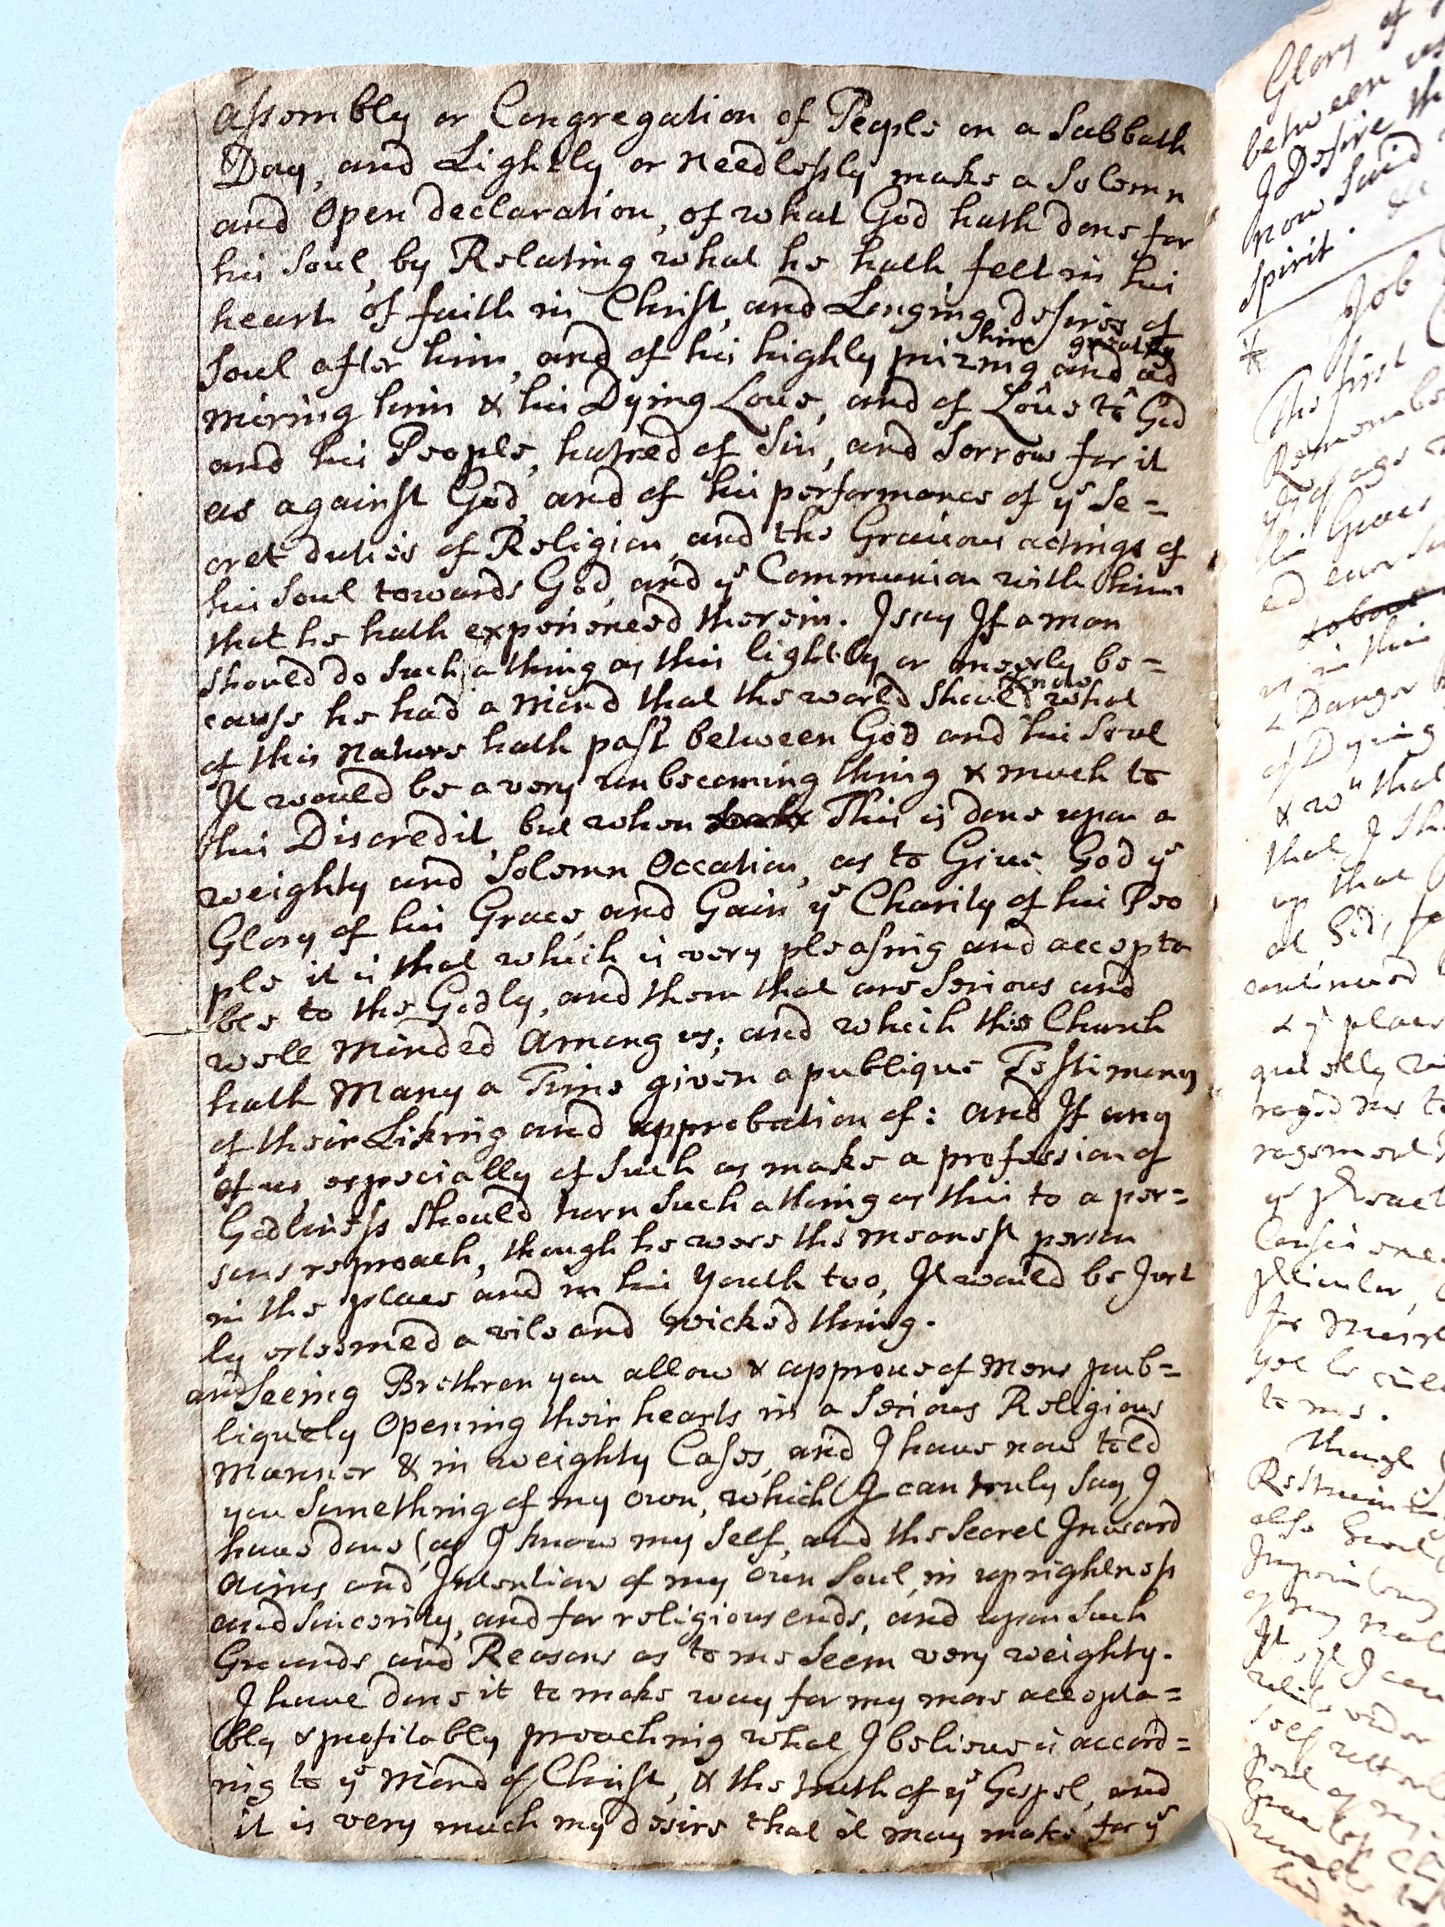 assembly or Congregation of People on a Sabbath
Day, and Lightly or needlessly make a Solemn
and Open declaration, of what God hath done for
his Soul, by Relating what he hath felt in his
heart of faith in Christ, and Longing desires of
Soul after him, and of his highly prizing him and greatly ad
miring him & his Dying Love, and of Love to God
and his People, hatred of Sin, and Sorrow for it
as against God, and of his performance of ye Se=
cret duties of Religion, and the Gracious actings of
his Soul towards God, and ye Communion with him
that he hath experienced therein. I say If a man
should do such a thing as this lightly or meerly be=
cause he had a mind that the world should know what
of this nature hath past between God and his Soul
It would be a very unbecoming thing & much to
his Discredit, but when This is done upon a
weighty and Solemn Occation, as to Give God ye
Glory of his Grace, and Gain ye Charity of his Peo
ple it is that which is very pleasing and accepta
ble to the Godly, and them that are Serious and
well minded Among us; and which this Church
hath Many a Time given a publique Testimony
of their Likeing and approbation of: and If any
of us, especially of Such as make a profession of
Godliness should turn Such a thing as this to a per=
sons reproach, though he were the meanest person
in the place and in his Youth too, It would be Just
ly esteemed a vile and wicked thing.
and Seeing Brethren you allow & approve of mens pub=
liquely Opening their hearts in a Serious Religious
manner & in weighty Cases, and I have now told
you something of my own, which (I can truly say I
have done (as I know my Self, and the Secret Inward
Aimes and Intention of my own Soul, in uprightness
and Sincerity, and for religious ends, and upon Such
Grounds and Reasons as to me Seem very weighty.
I have done it to make way for my more accepta=
bly & profitably preaching what I believe is accord=
ing to ye Mind of Christ, & the truth of ye Gospel, and
it is very much my desire that it may make for ye
Glory of
between us
I Desire th
now Said
Spirit.
Job
The first
Remembe
of age
his Grace
in this
& Danger
of Dying
& wn that
that I sh
on that
continued
& ye place
to me.
though